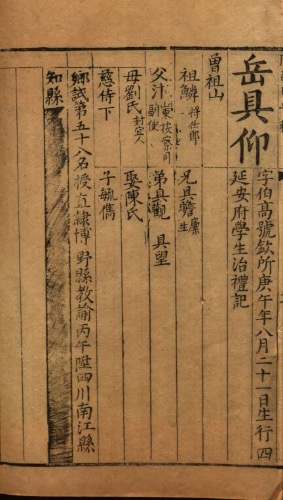 岳具仰
字伯高號欽所庚午年八月二十一日生行四
延安府學生治禮記
曾祖山
祖鱗 將仕郎
兄具瞻 廩生
父汴 按察司副使
弟具觀 具望
母劉氏 封宜人
娶陳氏
慈侍下
子毓儁
鄉試第五十八名授直隸博野縣教諭丙午陞四川南江縣
知縣